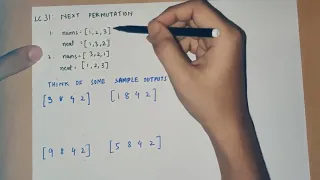 LC 31: NEXT PERMUTATION
1. nums = [1,2,3]
next = [1,3,2]
2. nums = [3,2,1]
next = [1,2,3]
THINK OF SOME SAMPLE OUTPUTS
[3 8 4 2] [1 8 4 2]
[9 8 4 2] [5 8 4 2]